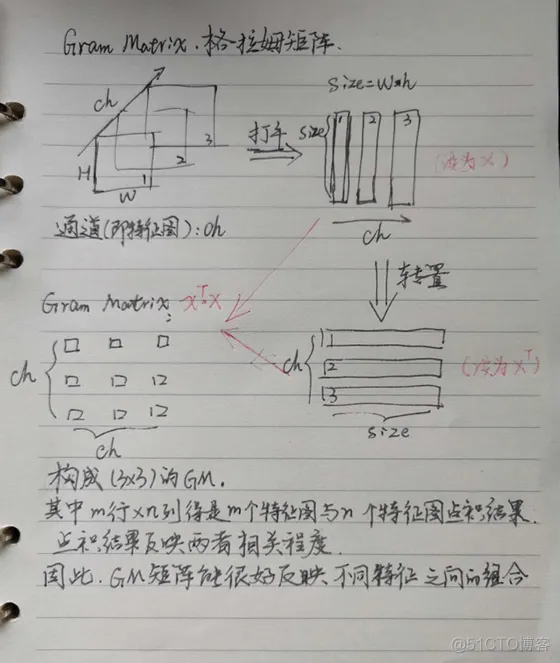 Gram Matrix. 格拉姆矩阵.
ch
H
W
1
2
3
打平
size=w*h
size
1
2
3
(设为X)
ch
通道(即特征图): ch
转置
Gram Matrix: XᵀX
ch
ch
ch
1
2
3
size
(设为Xᵀ)
构成(3x3)的GM.
其中m行xn列得是m个特征图与n个特征图点积结果.
点积结果反映两者相关程度.
因此.GM矩阵能很好反映不同特征之间的组合
@51CTO博客